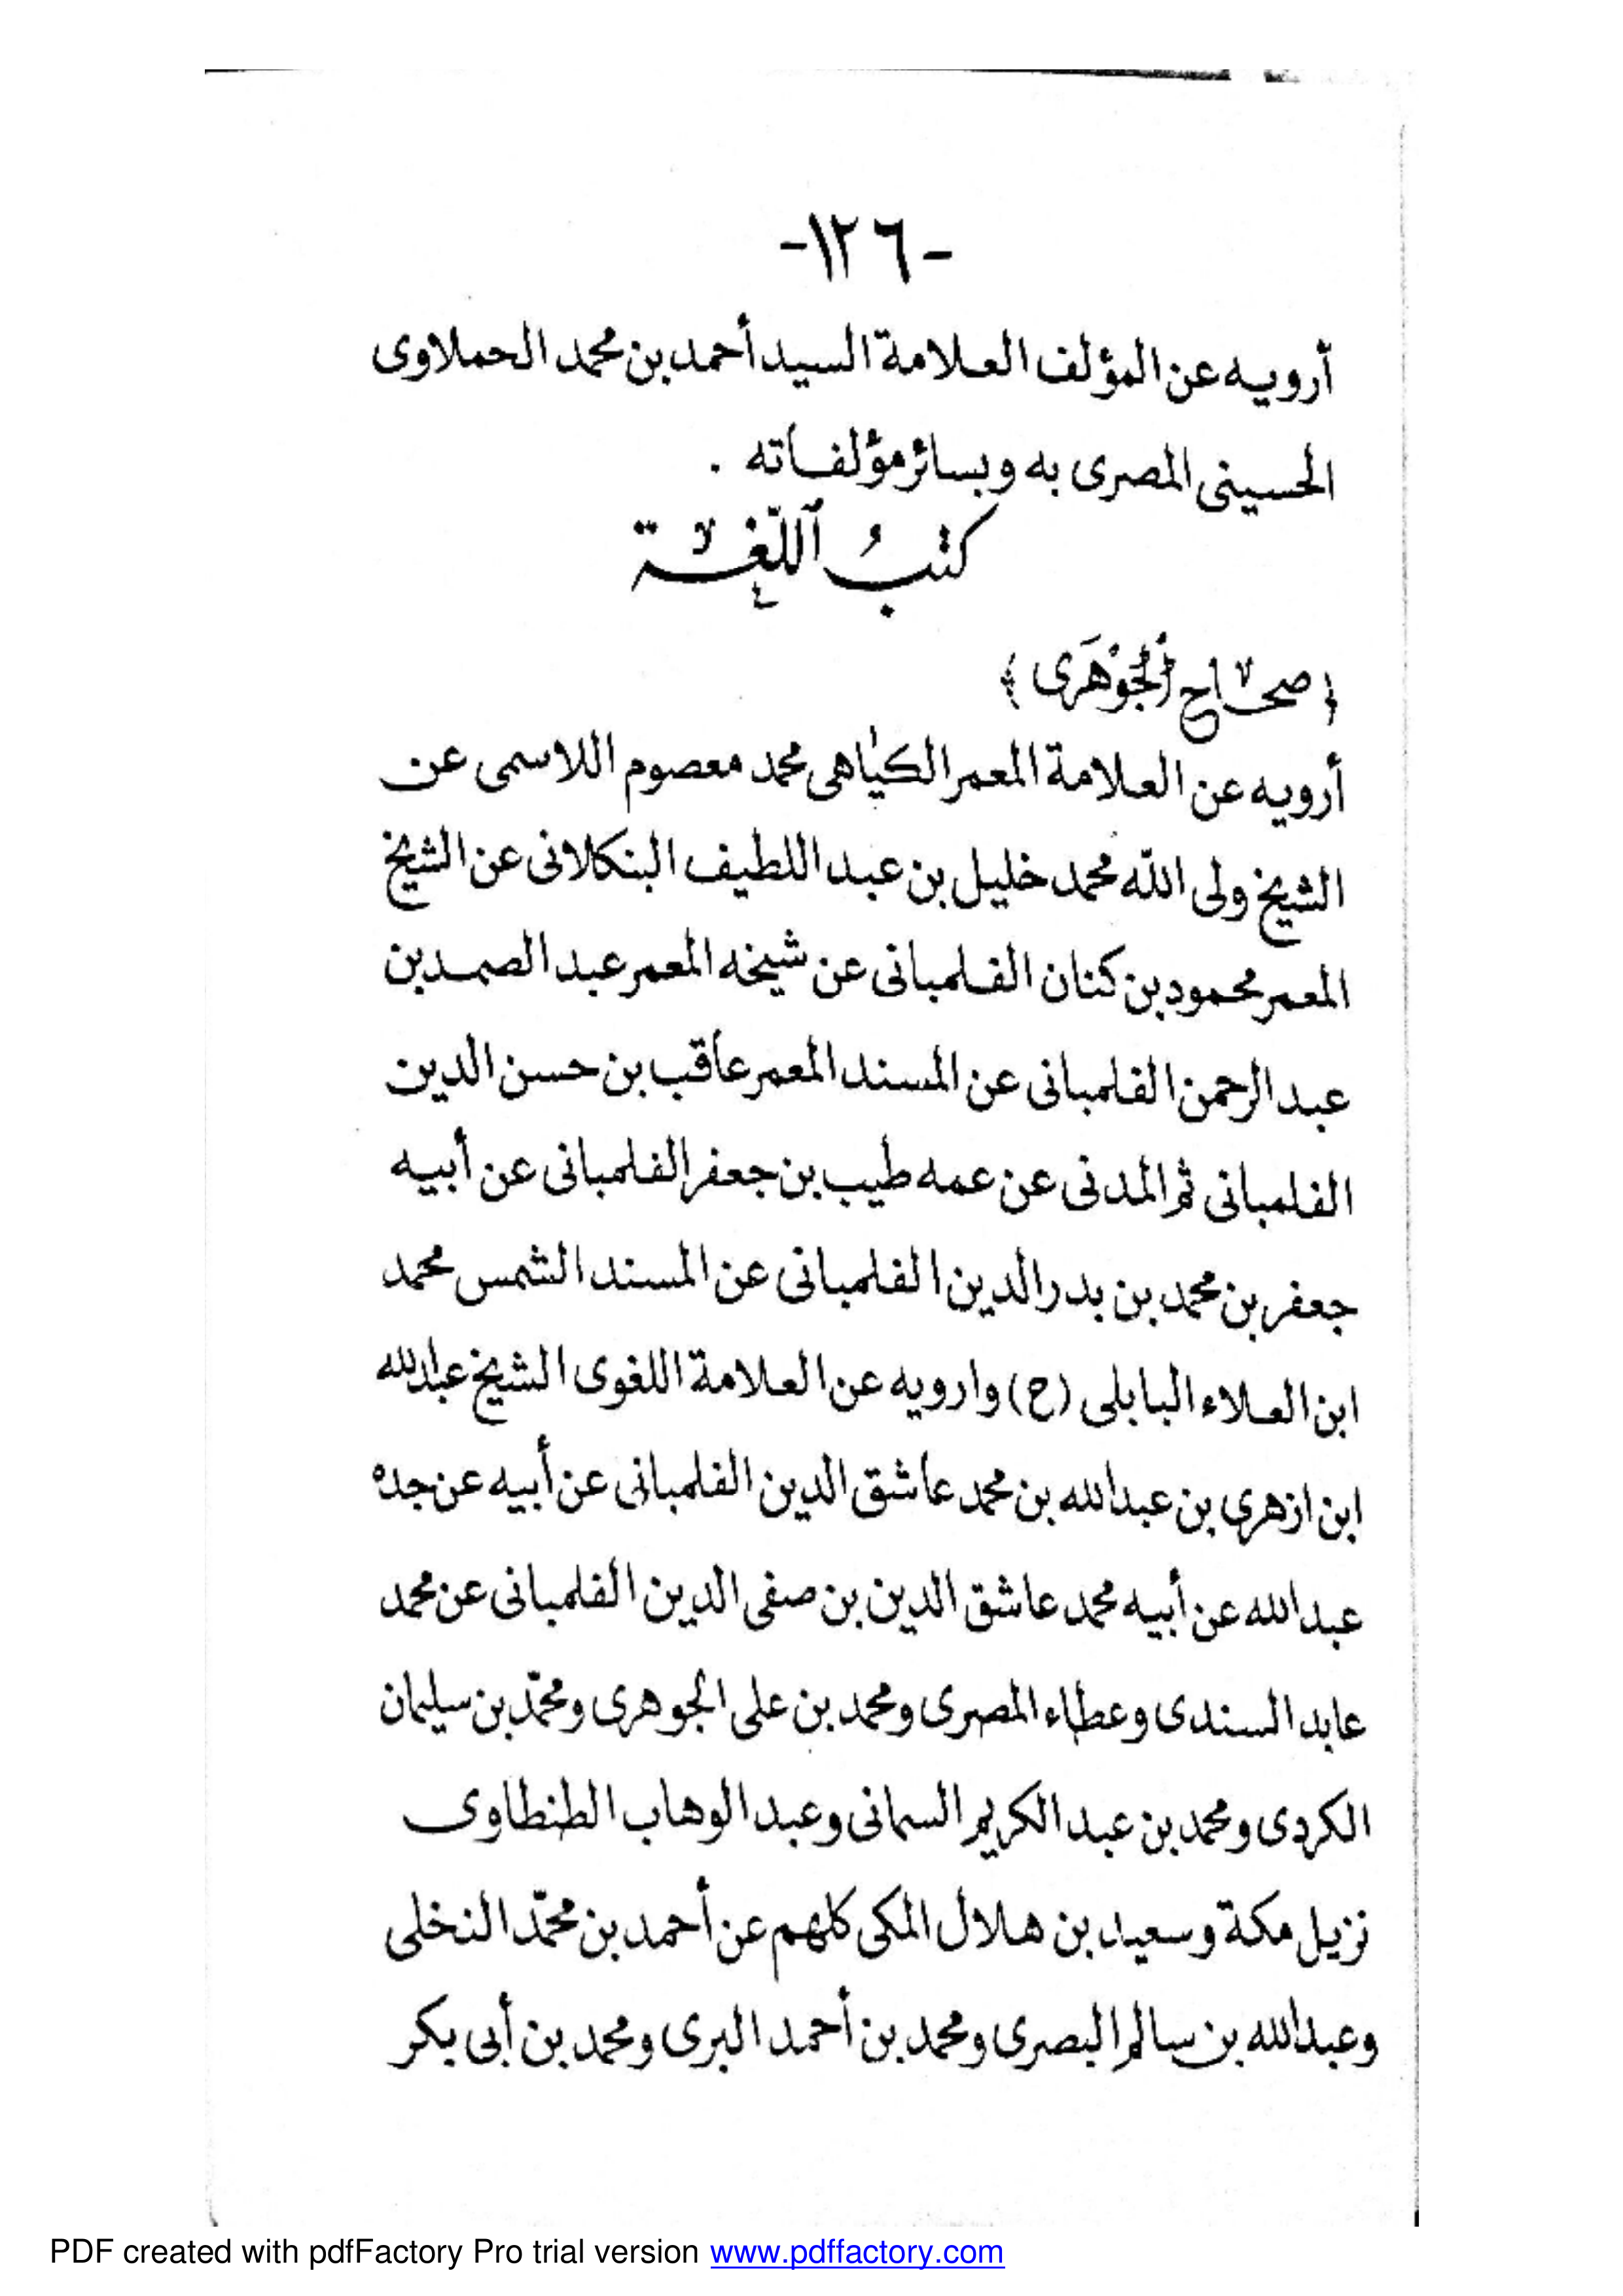 -١٢٦-
أرويه عن المؤلف العلامة السيد أحمد بن محمد الحملاوى
الحسينى المصرى به وبسائر مؤلفاته .
كتبُ اللّغة
﴿صحاح الجَوْهَرى﴾
أرويه عن العلامة المعمر الكياهى محمد معصوم اللاسمى عن
الشيخ ولى الله محمد خليل بن عبد اللطيف البنكلانى عن الشيخ
المعمر محمود بن كنان الفلمبانى عن شيخه المعمر عبد الصمد بن
عبد الرحمن الفلمبانى عن المسند المعمر عاقب بن حسن الدين
الفلمبانى ثم المدنى عن عمه طيب بن جعفر الفلمبانى عن أبيه
جعفر بن محمد بن بدر الدين الفلمبانى عن المسند الشمس محمد
ابن العلاء البابلى (ح) وارويه عن العلامة اللغوى الشيخ عبدالله
ابن ازهرى بن عبدالله بن محمد عاشق الدين الفلمبانى عن أبيه عن جده
عبدالله عن أبيه محمد عاشق الدين بن صفى الدين الفلمبانى عن محمد
عابد السندى وعطاء المصرى ومحمد بن على الجوهرى ومحمّد بن سليمان
الكردى ومحمد بن عبد الكريم السمانى وعبد الوهاب الطنطاوى
نزيل مكة وسعيد بن هلال المكى كلهم عن أحمد بن محمّد النخلى
وعبدالله بن سالم البصرى ومحمد بن أحمد البرى ومحمد بن أبى بكر
PDF created with pdfFactory Pro trial version www.pdffactory.com